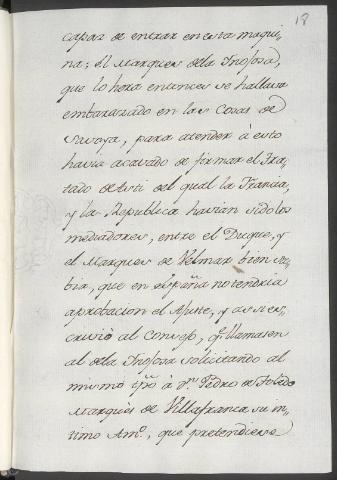 18
capaz de entrar en esta maqui,,
na; El Marques dela Inojosa,
que lo hera entonces se hallava
embarazado en las Cosas de
Savoya, para atender à esto
havia acavado de firmar el Tra,,
tado de Asti del qual la Francia,
y la Republica havian sido los
mediadores, entre el Duque, y
el Marques de Velmar bien sa,,
bia, que en España no tendria
aprobacion el Ajuste, y assi es,,
crivió al Consejo, q.e llamasen
al dela Inojosa solicitando al
mismo tpo à Dn. Pedro de Toledo
Marquès de Villafranca su in,,
timo Am.o, que pretendiese